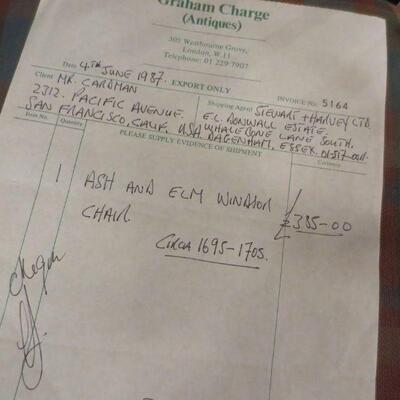 Graham Charge
(Antiques)
305 Westbourne Grove,
London, W.11
Telephone: 01 229 7907
Date 4TH JUNE 1987. EXPORT ONLY
INVOICE No: 5164
Client MR. CARDMAN
2312. PACIFIC AVENUE.
SAN FRANCISCO, CALIF. USA
Shipping Agent STEWART + HARVEY LTD.
E.C. ESTATE.
WHALEBONE LANE SOUTH.
DAGENHAM, ESSEX.
Item No. Quantity PLEASE SUPPLY EVIDENCE OF SHIPMENT
1 ASH AND ELM WINDSOR £385-00
CHAIR.
CIRCA 1695-1705.